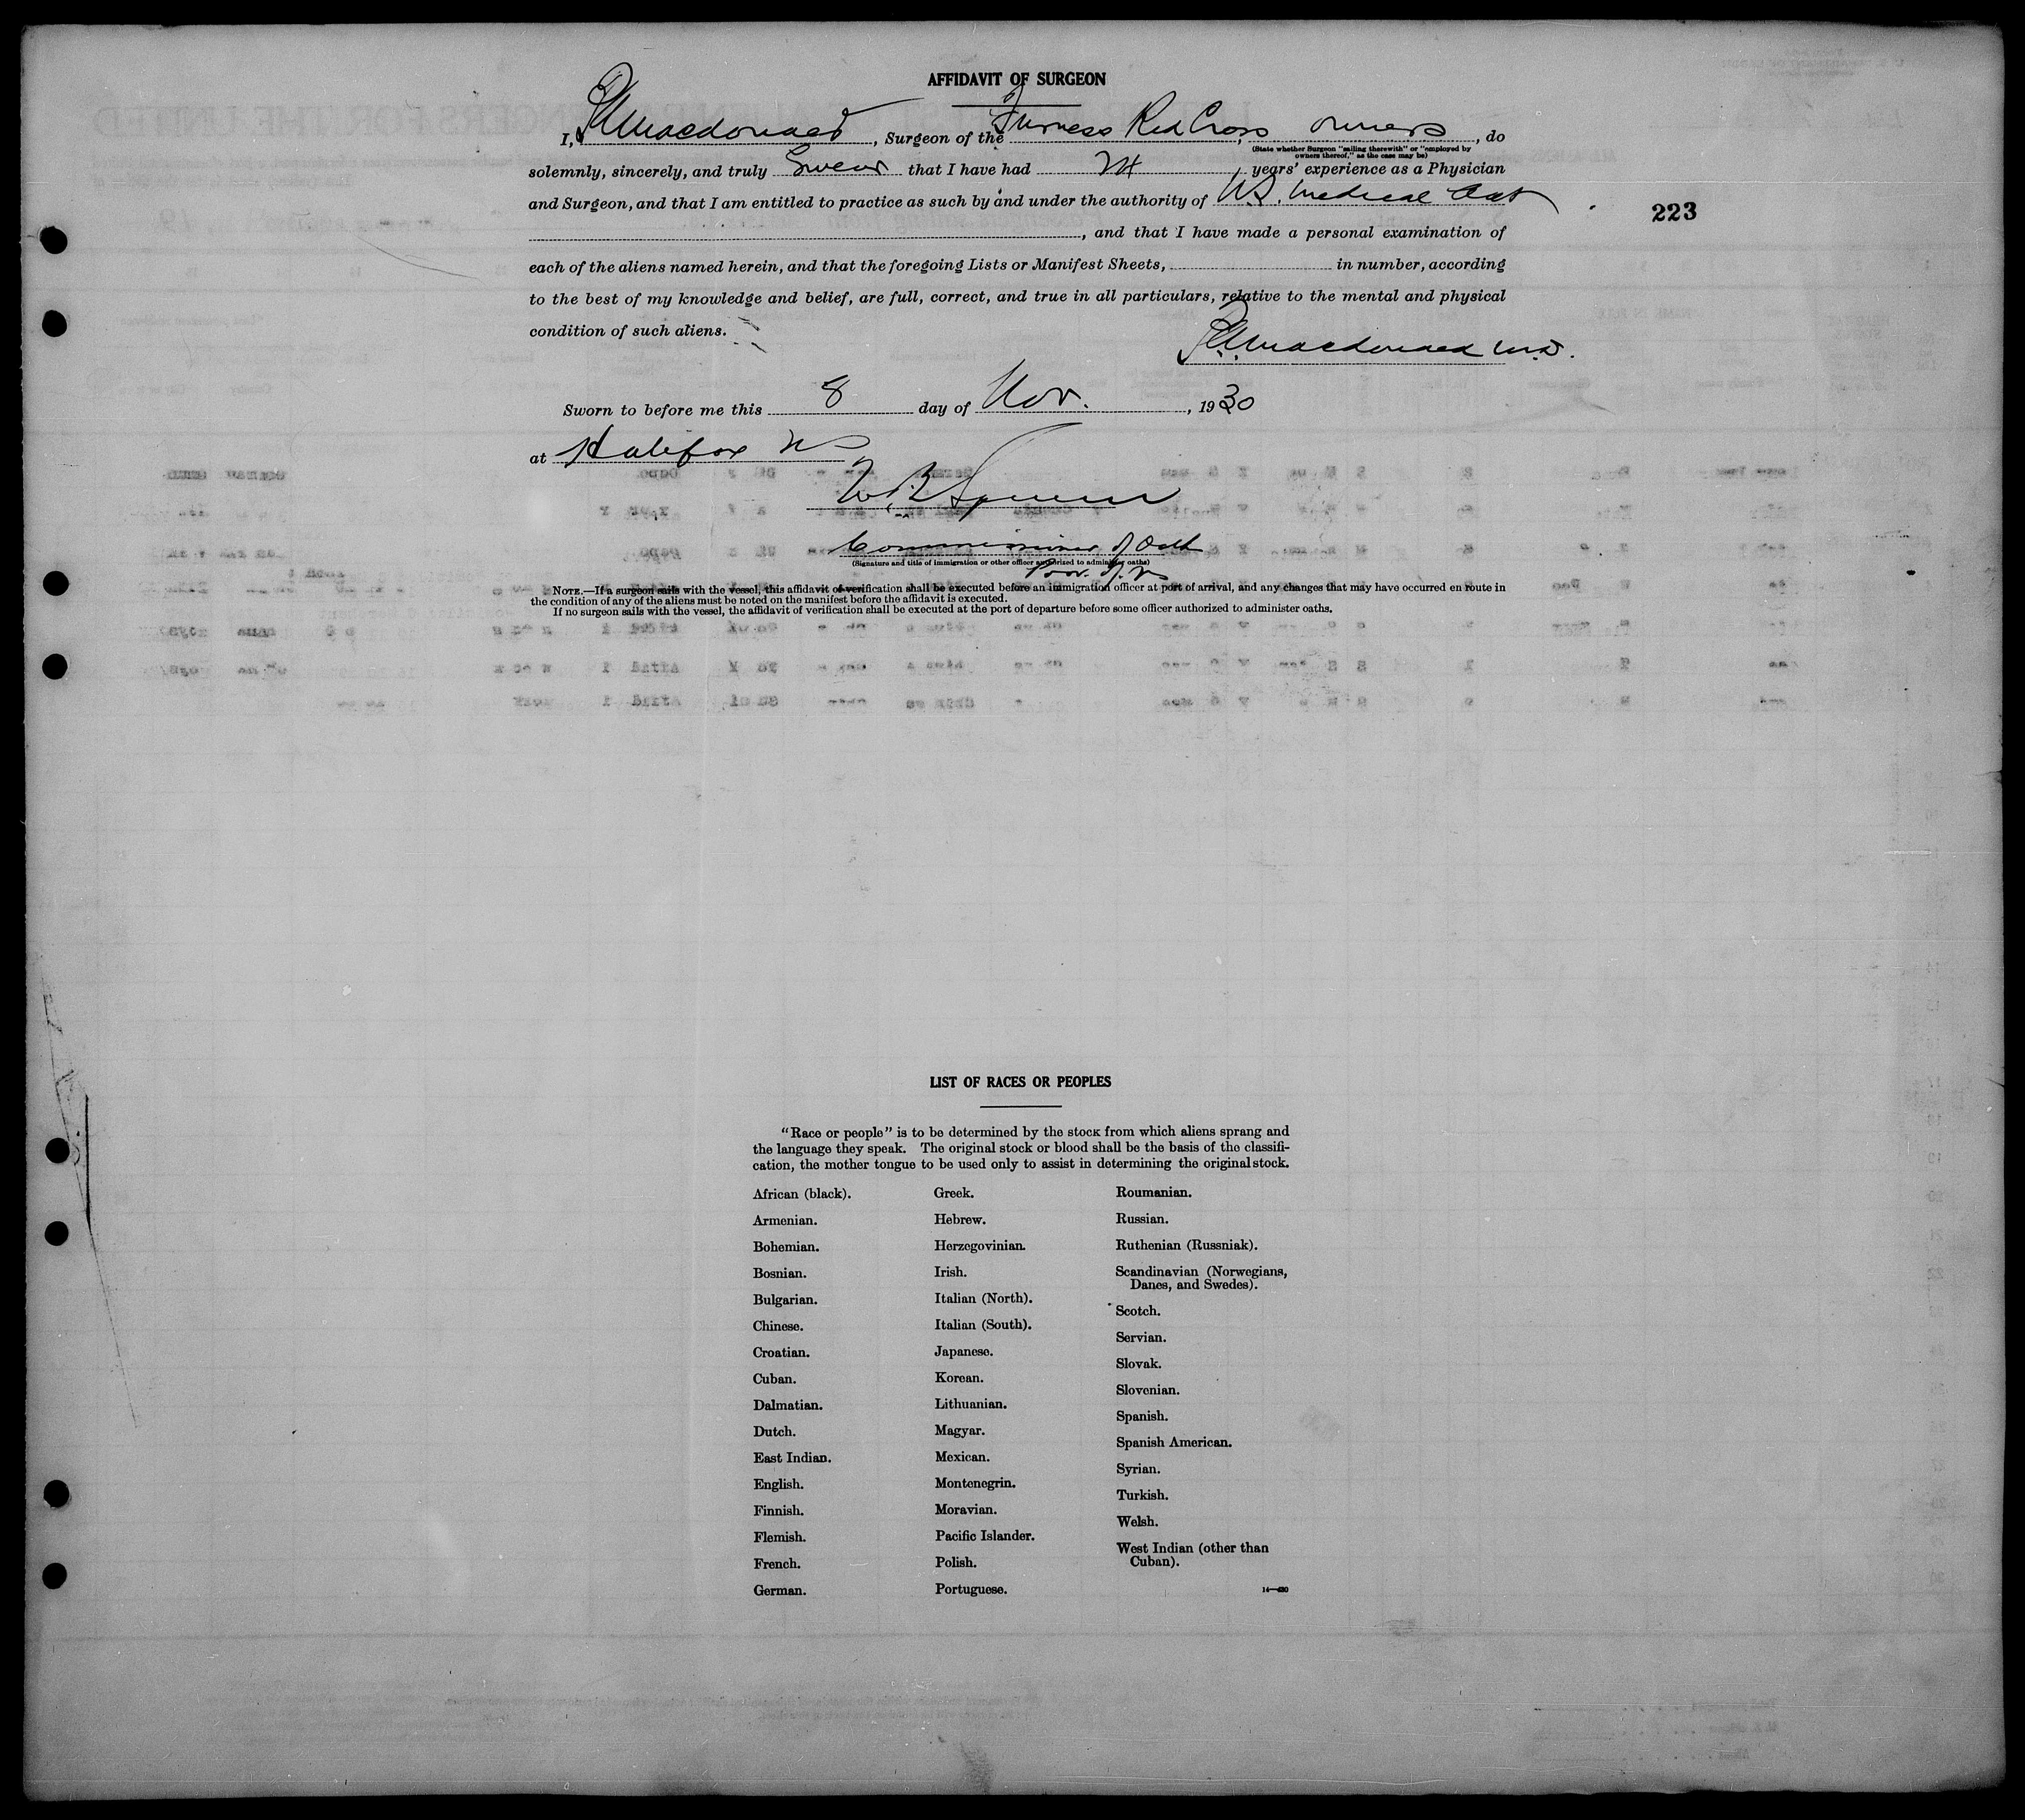 AFFIDAVIT OF SURGEON
I, Macdonald, Surgeon of the Furness Red Cross, owners, do
(State whether Surgeon "sailing therewith" or "employed by owners thereof," as the case may be)
solemnly, sincerely, and truly Swear that I have had 24 years' experience as a Physician
and Surgeon, and that I am entitled to practice as such by and under the authority of N.S. Medical Act
, and that I have made a personal examination of
each of the aliens named herein, and that the foregoing Lists or Manifest Sheets, in number, according
to the best of my knowledge and belief, are full, correct, and true in all particulars, relative to the mental and physical
condition of such aliens.
Macdonald M.D.
Sworn to before me this 8 day of Nov., 1930
at Halifax NS
W.B.
Commissioner of Oath
(Signature and title of immigration or other officer authorized to administer oaths)
Prov. of NS
NOTE.—If a surgeon sails with the vessel, this affidavit of verification shall be executed before an immigration officer at port of arrival, and any changes that may have occurred en route in
the condition of any of the aliens must be noted on the manifest before the affidavit is executed.
If no surgeon sails with the vessel, the affidavit of verification shall be executed at the port of departure before some officer authorized to administer oaths.
223
LIST OF RACES OR PEOPLES
"Race or people" is to be determined by the stock from which aliens sprang and
the language they speak. The original stock or blood shall be the basis of the classifi-
cation, the mother tongue to be used only to assist in determining the original stock.
African (black).
Armenian.
Bohemian.
Bosnian.
Bulgarian.
Chinese.
Croatian.
Cuban.
Dalmatian.
Dutch.
East Indian.
English.
Finnish.
Flemish.
French.
German.
Greek.
Hebrew.
Herzegovinian.
Irish.
Italian (North).
Italian (South).
Japanese.
Korean.
Lithuanian.
Magyar.
Mexican.
Montenegrin.
Moravian.
Pacific Islander.
Polish.
Portuguese.
Roumanian.
Russian.
Ruthenian (Russniak).
Scandinavian (Norwegians,
Danes, and Swedes).
Scotch.
Servian.
Slovak.
Slovenian.
Spanish.
Spanish American.
Syrian.
Turkish.
Welsh.
West Indian (other than
Cuban).